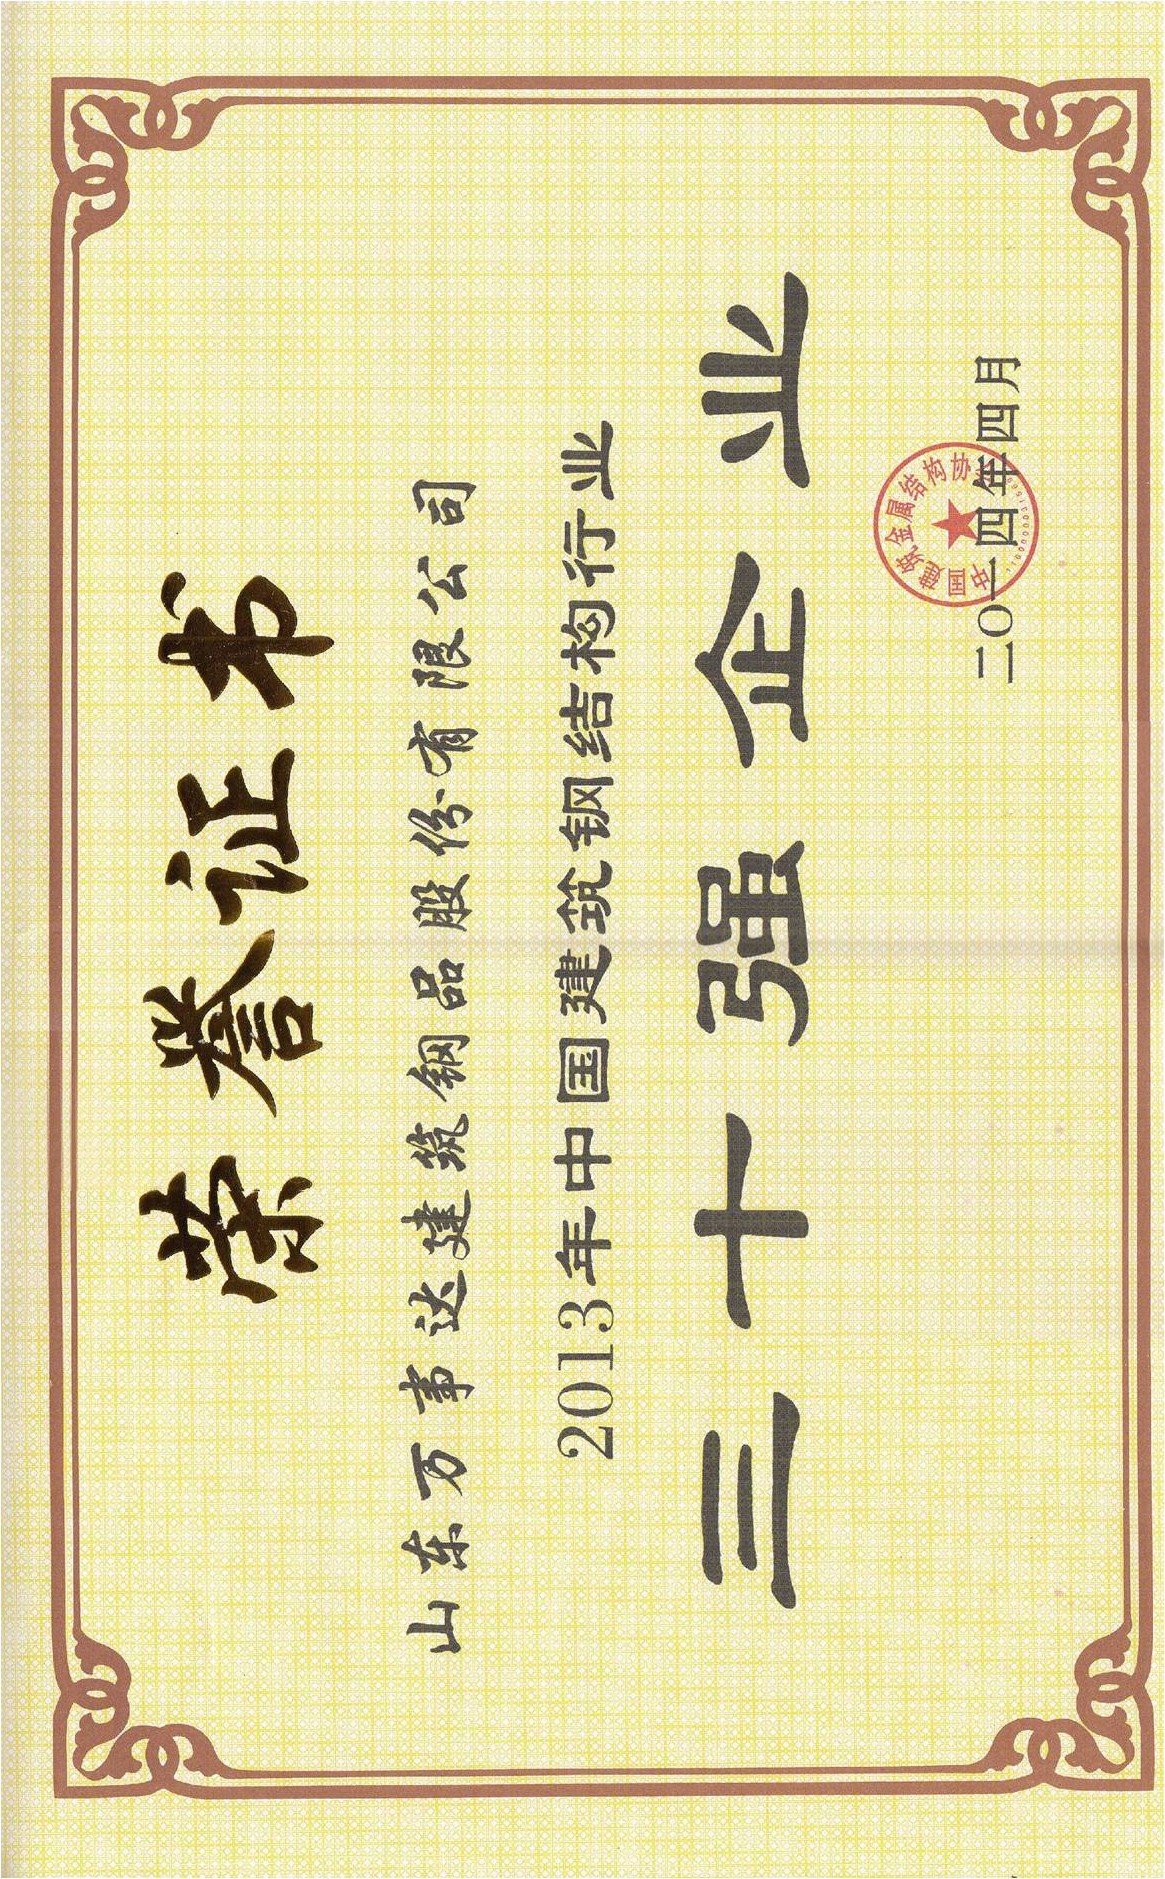 荣誉证书
山东万事达建筑钢品股份有限公司
2013年中国建筑钢结构行业
三十强企业
中国建筑金属结构协会
二〇一四年四月